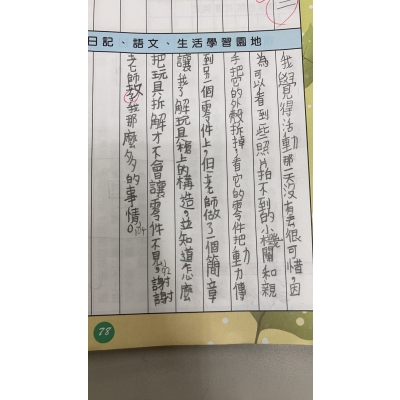 日記、語文、生活學習園地
我覺得活動那一天沒有去很可惜,因
為可以看到些照片拍不到的小機關和親
手把它的外殼拆掉,看它的零件把動力傳
到另一個零件上,但老師做了一個簡章
讓我了解玩具槍上的構造,並知道怎麼
把玩具拆解才不會讓零件不見,謝謝
老師教我那麼多的事情。
78